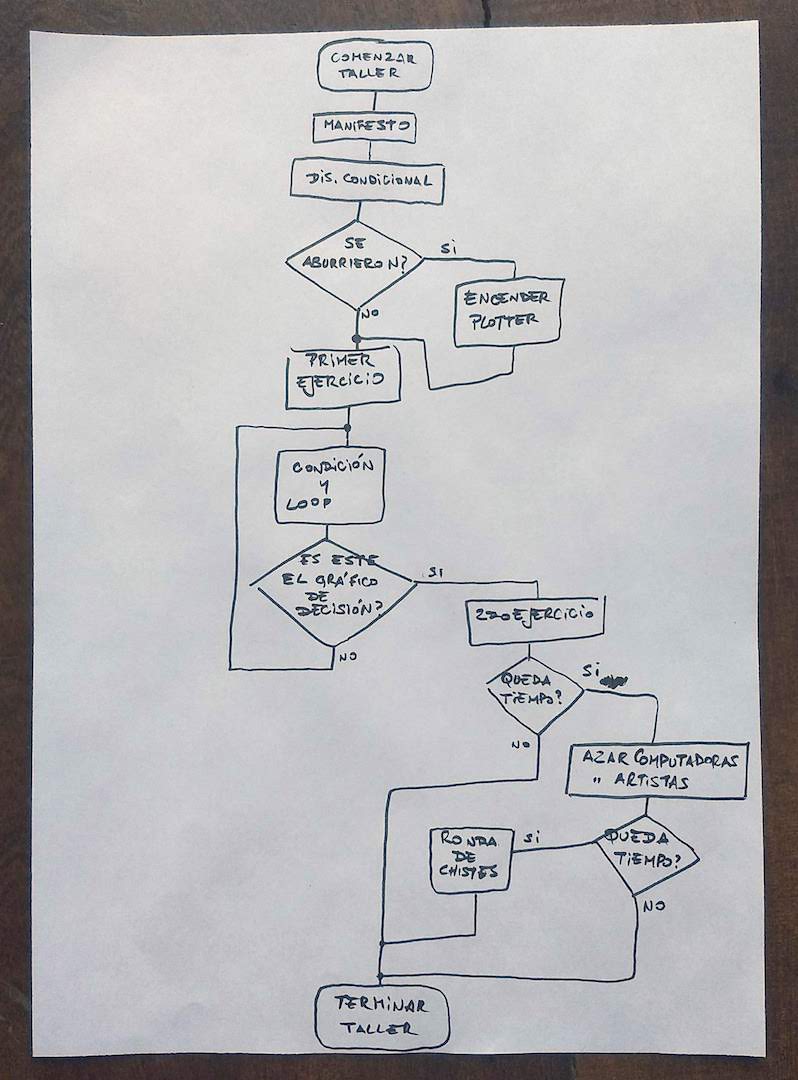 COMENZAR
TALLER
MANIFESTO
DIS. CONDICIONAL
SE
ABURRIERON?
SI
ENCENDER
PLOTTER
NO
PRIMER
EJERCICIO
CONDICIÓN
Y
LOOP
ES ESTE
EL GRÁFICO
DE
DECISIÓN?
SI
NO
2DO EJERCICIO
QUEDA
TIEMPO?
SI
NO
AZAR COMPUTADORAS
" ARTISTAS
QUEDA
TIEMPO?
SI
RONDA
DE
CHISTES
NO
TERMINAR
TALLER